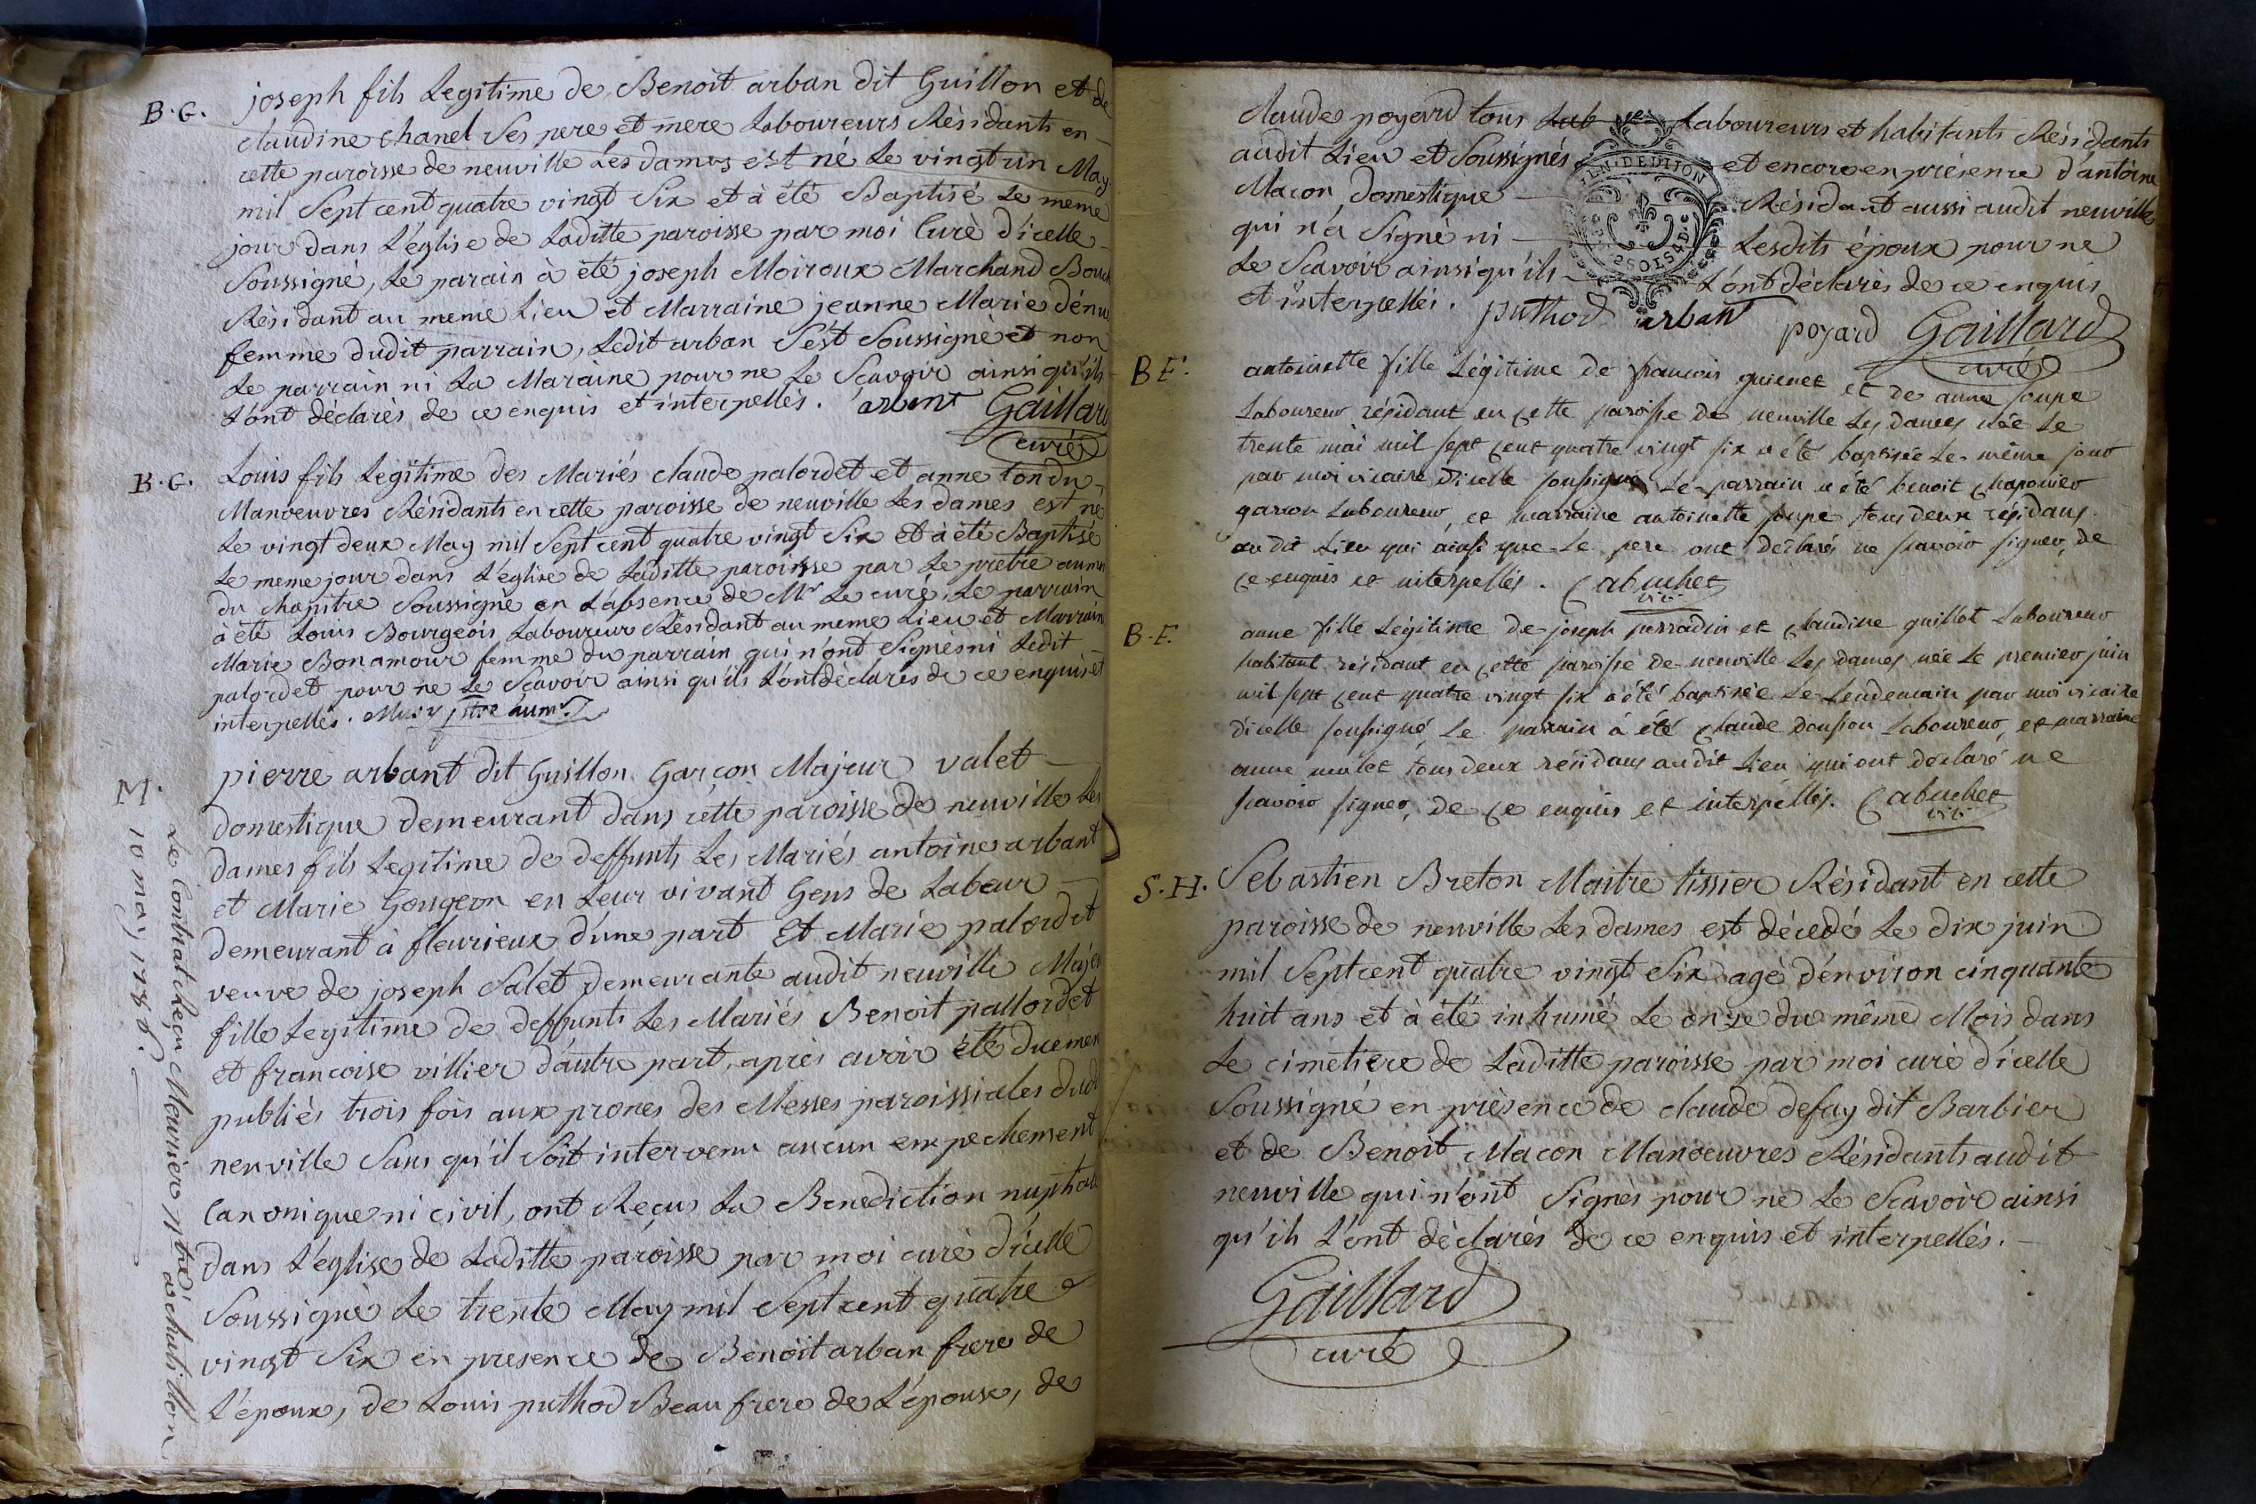 B.G.
joseph fils Legitime de Benoit arban dit Guillon et de
claudine chanel Ses pere et mere Laboureurs Résidants en
cette paroisse de neuville Les dames est né Le vingt un May
mil Sept cent quatre vingt Six et à été Baptisé Le meme
jour dans L'église de Laditte paroisse par moi Curé d'icelle
Soussigné, Le parain à été joseph Moiroux Marchand
Résidant au meme Lieu et Marraine jeanne Marie
femme dudit parrain, Ledit arban S'est Soussigné et non
Le parrain ni La Maraine pour ne Le Scavoir ainsi qu'ils
L'ont déclarès de ce enquis et interpellés. arbant Gaillard
curé
B.G.
Louis fils Legitime des Mariés claude palordet et anne tondu
Manoeuvres Résidants en cette paroisse de neuville Les dames est né
Le vingt deux May mil Sept cent quatre vingt Six et à été Baptisé
Le meme jour dans L'église de Laditte paroisse par Le prètre
du chapitre Soussigné en L'absence de Mr Le curé, Le parrain
à été Louis Bourgeois Laboureur Résidant au meme Lieu et Marraine
Marie Bonamour femme du parrain qui n'ont Signés ni Ledit
palordet pour ne Le Scavoir ainsi qu'ils L'ont déclarés de ce enquis et
interpellés.
M.
Le Contrat Reçu Meurier Ntre à chatillon
10 may 1786.
pierre arbant dit Guillon Garçon Majeur valet
domestique demeurant dans cette paroisse de neuville Les
dames fils Legitime de deffunts Les Mariés antoine arbant
et Marie Gongeon en Leur vivant Gens de Labeur
demeurant à fleurieux d'une part Et Marie palordet
veuve de joseph Salet demeurante audit neuville
fille Legitime de deffunts Les Mariés Benoit pallordet
et francoise villier d'autre part, après avoir été
publiés trois fois aux prones des Messes paroissiales
neuville Sans qu'il Soit intervenu aucun empechement
Canonique ni civil, ont Reçus La Benediction
dans L'église de Laditte paroisse par moi curé d'icelle
Soussigné Le trente May mil Sept cent quatre
vingt Six en presence de Benoit arban frere de
L'époux, de Louis puthod Beau frere de L'épouse, de
claude poyard tous Laboureurs et habitants Résidants
audit Lieu et Soussignés et encore en présence d'antoine
Macon domestique Résidant aussi audit neuville
qui n'a Signé ni Lesdits époux pour ne
Le Scavoir ainsi qu'ils L'ont déclarés de ce enquis
et interpellés. puthod arbant poyard Gaillard
curé
B.F.
antoinette fille Légitime de francois guienet et de anne soupe
Laboureur résidant en cette paroisse de neuville Les dames née Le
trente mai mil sept cent quatre vingt six a été baptisée Le même jour
par moi vicaire d'icelle soussigné Le parrain a été benoit chaponier
garcon Laboureur, et marraine antoinette soupe tous deux résidans
au dit Lieu qui ainsi que Le pere ont déclarés ne scavoir signer, de
ce enquis et interpellés. Cabuchet
vic.
B.F.
anne fille Légitime de joseph perradin et claudine guillot Laboureur
habitant résidant en cette paroisse de neuville Les dames née Le premier juin
mil sept cent quatre vingt six a été baptisée Le Lendemain par moi vicaire
dicelle soussigné, Le parrain à été claude Laboureur, et marraine
anne mulet tous deux résidans audit Lieu qui ont déclaré ne
scavoir signer, de ce enquis et interpellés. Cabuchet
vic.
S.H.
Sebastien Breton Maitre tissier Résidant en cette
paroisse de neuville Les dames est décedé Le dix juin
mil Sept cent quatre vingt Six agé d'environ cinquante
huit ans et à été inhumé Le onze du même Mois dans
Le cimetiere de Laditte paroisse par moi curé d'icelle
Soussigné en présence de claude defay dit Barbier
et de Benoit Macon Manoeuvres Résidants audit
neuville qui n'ont Signés pour ne Le Scavoir ainsi
qu'ils L'ont déclarés de ce enquis et interpellés.
Gaillard
curé